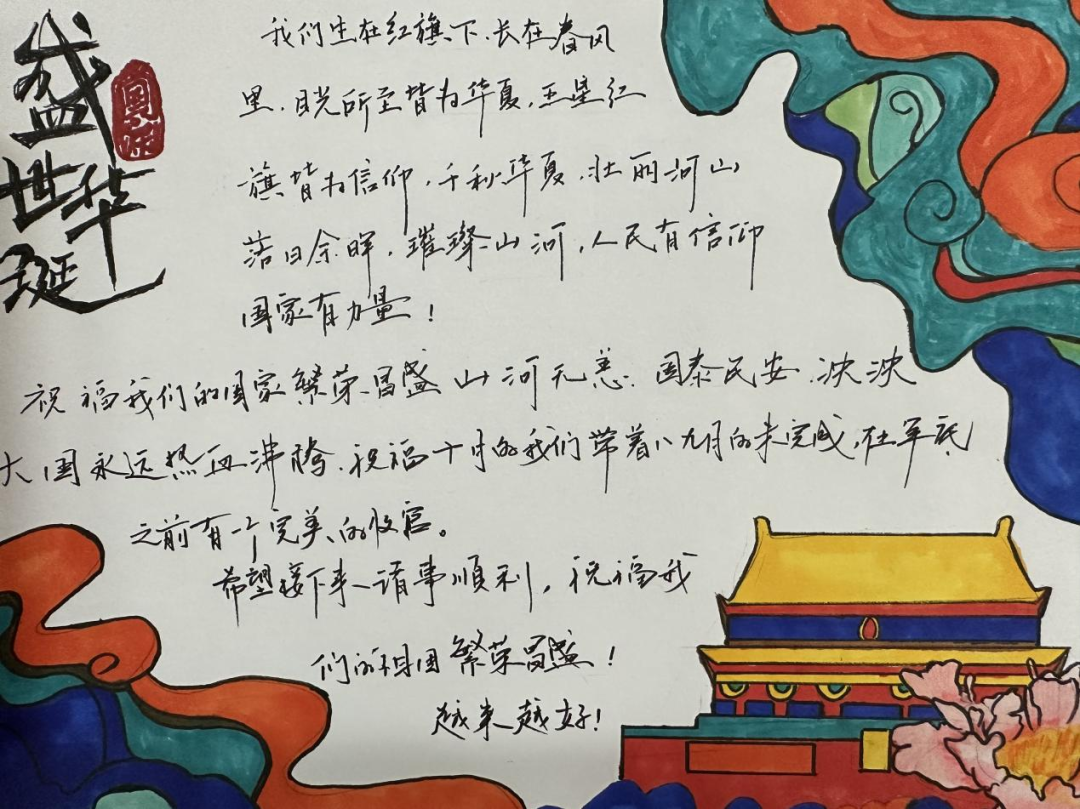 盛世华诞
国庆
我们生在红旗下、长在春风
里，目光所至皆为华夏，五星红
旗皆为信仰，千秋华夏，壮丽河山
落日余晖，璀璨山河，人民有信仰
国家有力量！
祝福我们的国家繁荣昌盛 山河无恙、国泰民安、泱泱
大国永远热血沸腾、祝福十月的我们带着八九月的未完成，在年底
之前有一个完美的收官。
希望接下来一请事顺利，祝福我
们的祖国繁荣昌盛！
越来越好！